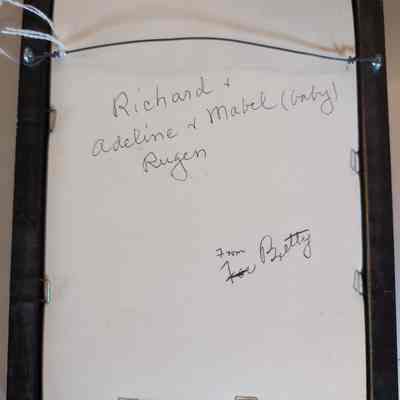 Richard +
Adeline + Mabel (baby)
Rugen
From
For Betty